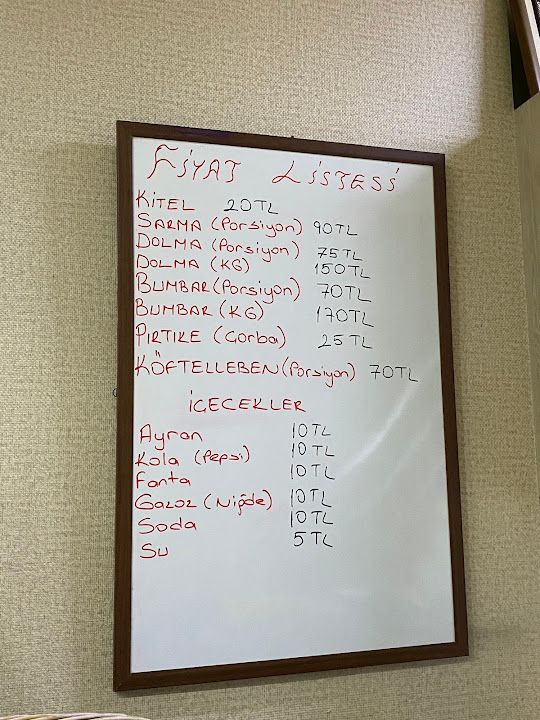 FİYAT LİSTESİ
KİTEL 20TL
SARMA (Porsiyon) 90TL
DOLMA (Porsiyon) 75TL
DOLMA (KG) 150TL
BUMBAR (Porsiyon) 70TL
BUMBAR (KG) 170TL
PIRTIKE (Çorba) 25TL
KÖFTELLEBEN (Porsiyon) 70TL
İÇECEKLER
Ayran 10TL
Kola (Pepsi) 10TL
Fanta 10TL
Gazoz (Niğde) 10TL
Soda 10TL
Su 5TL